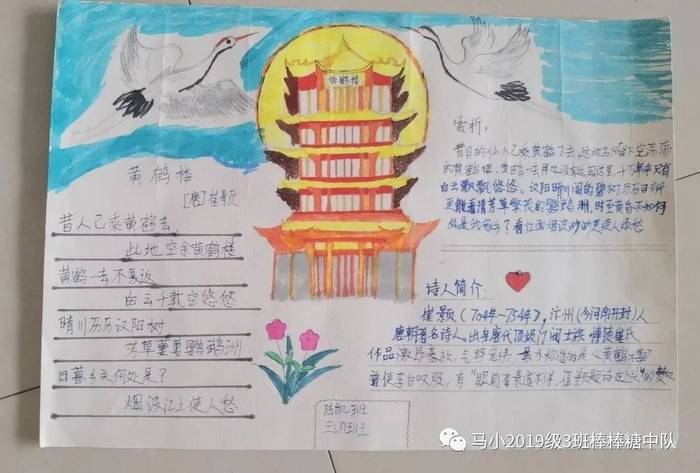 黄鹤楼
黄鹤楼
[唐]崔颢
昔人已乘黄鹤去
此地空余黄鹤楼
黄鹤一去不复返
白云千载空悠悠
晴川历历汉阳树
芳草萋萋鹦鹉洲
日暮乡关何处是?
烟波江上使人愁
赏析:
昔日的仙人已乘黄鹤飞去,这地方只留下空荡荡
的黄鹤楼,黄鹤一去再也没有回这里,千万年只有
白云飘飘悠悠。汉阳晴川阁的碧树历历可辨
更能看清芳草繁茂的鹦鹉洲,时至黄昏不知何
处是我家乡?看江面烟波渺渺更使人惆怅
诗人简介:
崔颢(704年-754年),汴州(今河南开封)人
唐朝著名诗人。出身唐代顶级门阀士族 博陵崔氏
作品激昂豪放,气势宏伟 最为称道的是《黄鹤楼》
曾使李白叹服,有“眼前有景道不得,崔颢题诗在上头”的赞叹
三(3)班
马小2019级3班棒棒糖中队